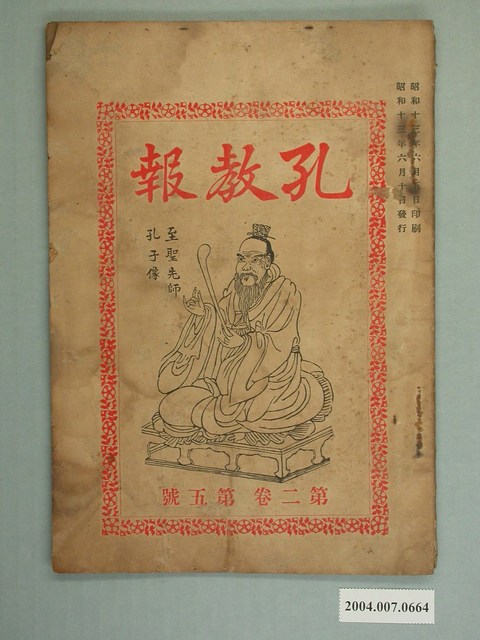 昭和十三年六月 日印刷
昭和十三年六月十日發行
孔教報
至聖先師
孔子像
第二卷 第五號
2004.007.0664